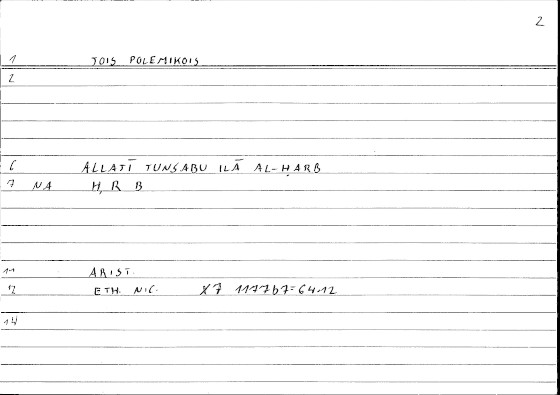 2
1 TOIS POLEMIKOIS
2
6 ALLATĪ TUNSABU ILĀ AL-ḤARB
7 NA Ḥ R B
11 ARIST.
12 ETH. NIC. X7 1177b7=641.12
14